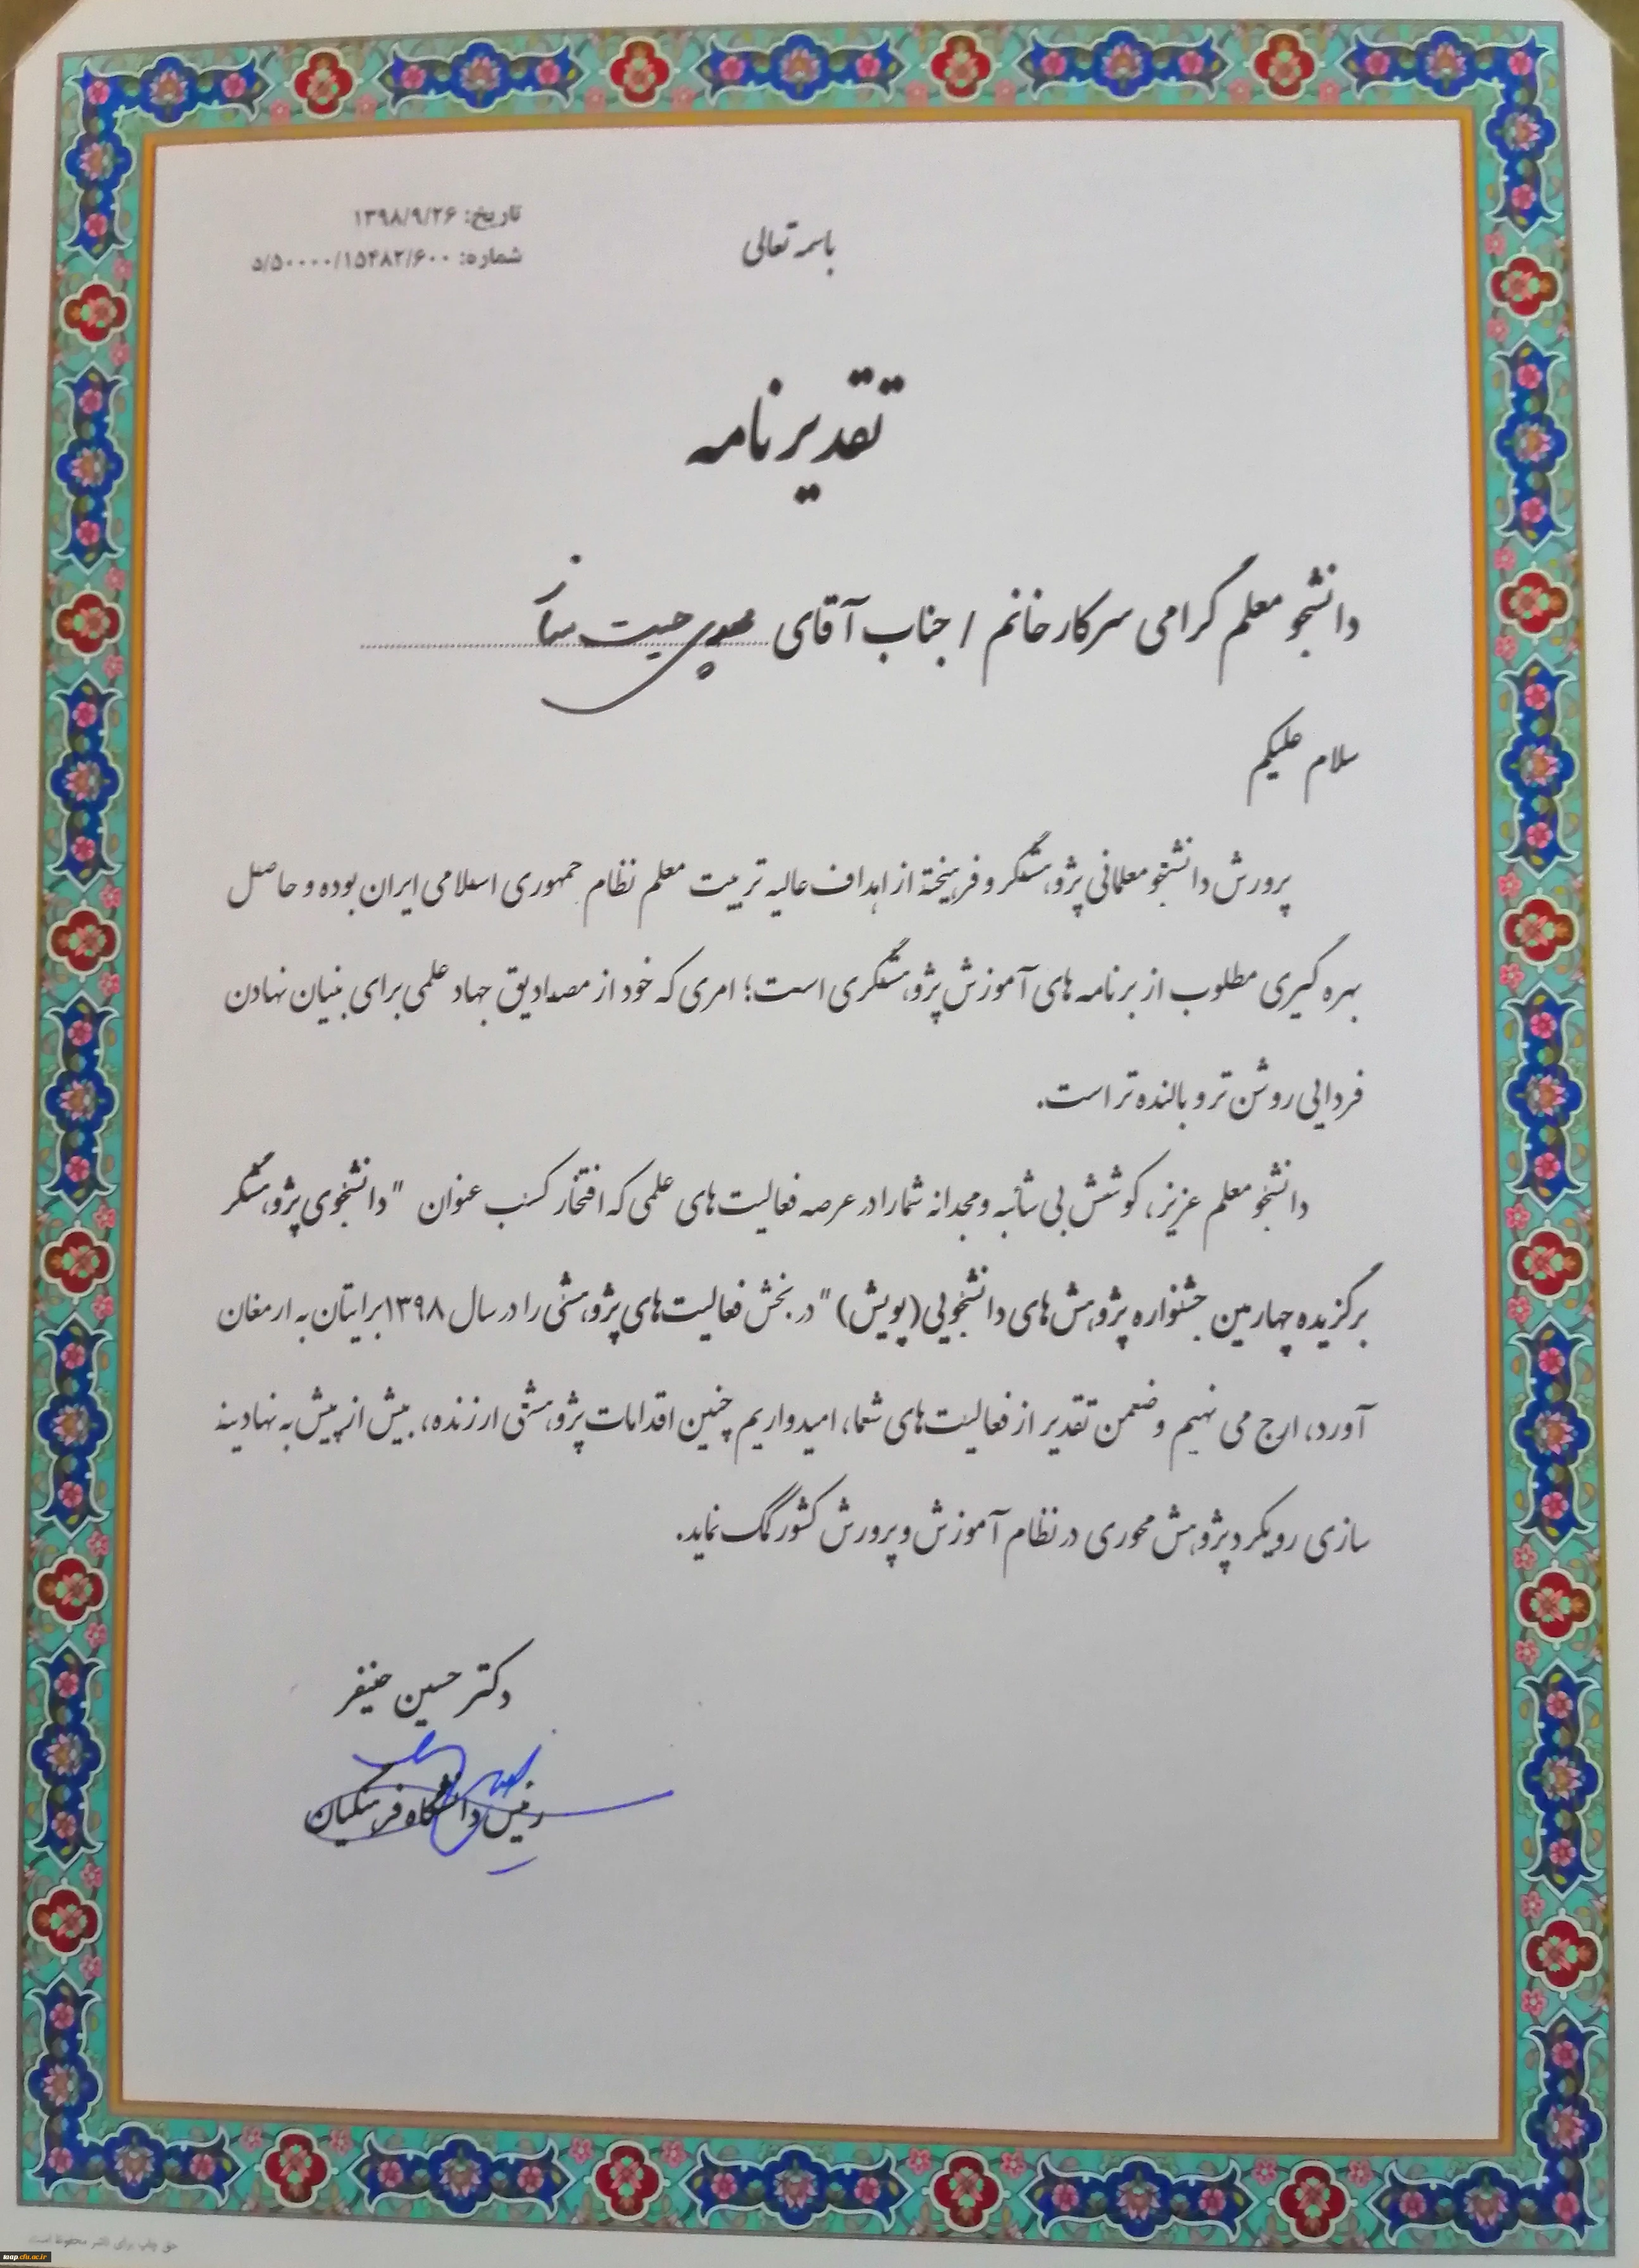 تاریخ: ۱۳۹۸/۹/۲۶
شماره: ۵/۵۰۰۰۰/۱۵۴۸۲/۶۰۰
باسمه تعالی
تقدیرنامه
دانشجو معلم گرامی سرکار خانم / جناب آقای
سلام علیکم
پرورش دانشجو معلمانی پژوهشگر و فرهیخته از اهداف عالیه تربیت معلم نظام جمهوری اسلامی ایران بوده و حاصل
بهره گیری مطلوب از برنامه های آموزش پژوهشگری است؛ امری که خود از مصادیق جهاد علمی برای بنیان نهادن
فردایی روشن تر و بالنده تر است.
دانشجو معلم عزیز، کوشش بی شائبه و مجدانه شما را در عرصه فعالیت های علمی که افتخار کسب عنوان "دانشجوی پژوهشگر
برگزیده چهارمین جشنواره پژوهش های دانشجویی (پویش)" در بخش فعالیت های پژوهشی را در سال ۱۳۹۸ برایتان به ارمغان
آورد، ارج می نهیم و ضمن تقدیر از فعالیت های شما، امیدواریم چنین اقدامات پژوهشی ارزنده، بیش از پیش به نهادینه
سازی رویکرد پژوهش محوری در نظام آموزش و پرورش کشور کمک نماید.
دکتر حسین خنیفر
رئیس دانشگاه فرهنگیان
حق چاپ برای ناشر محفوظ است
map.cfu.ac.ir